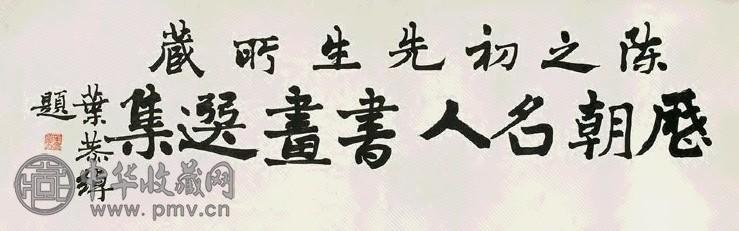 陈之初先生所藏
歷朝名人書畫選集
葉恭綽
題
中华收藏网
www.pmv.cn